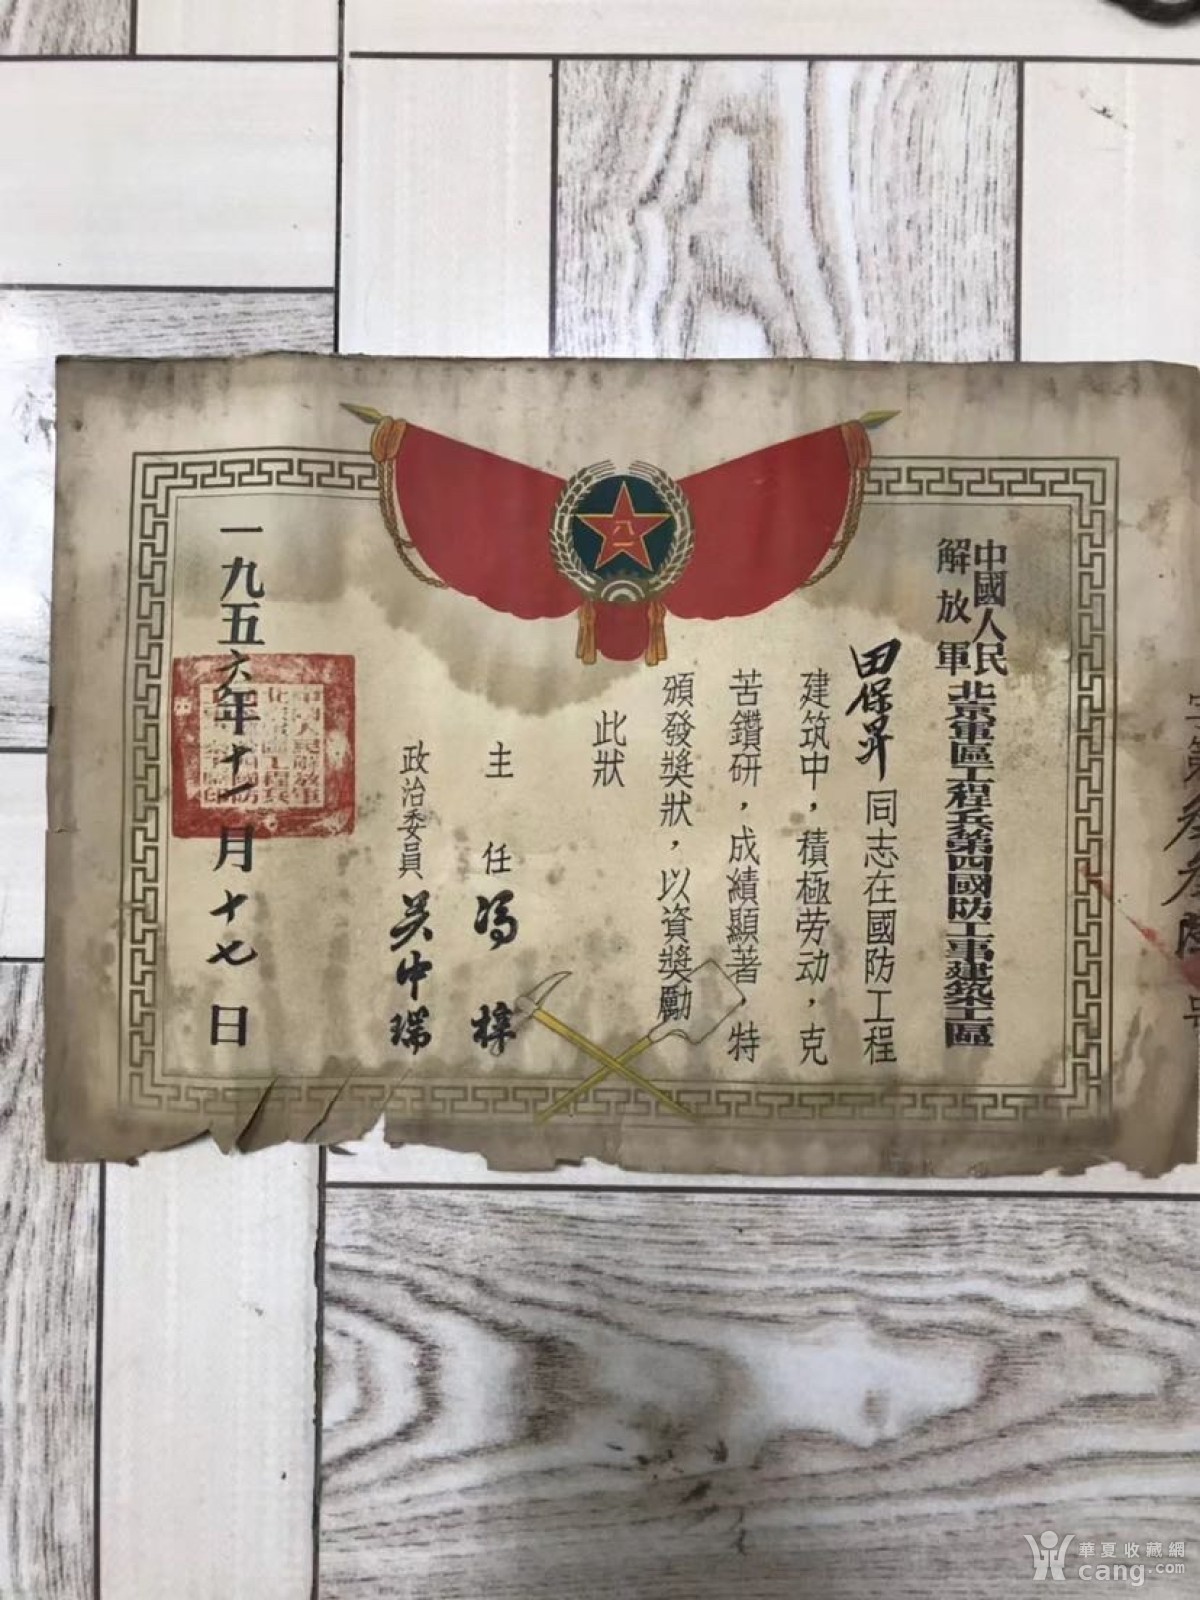 中國人民
解放軍北京軍區工程兵第四國防工事建築工區
田保昇同志在國防工程
建筑中，積極劳动，克
苦鑽研，成績顯著，特
頒發獎狀，以資獎勵
此狀
主任 馮梓
政治委員 吴中瑞
一九五六年十一月十七日
八一
華夏收藏網
cang.com